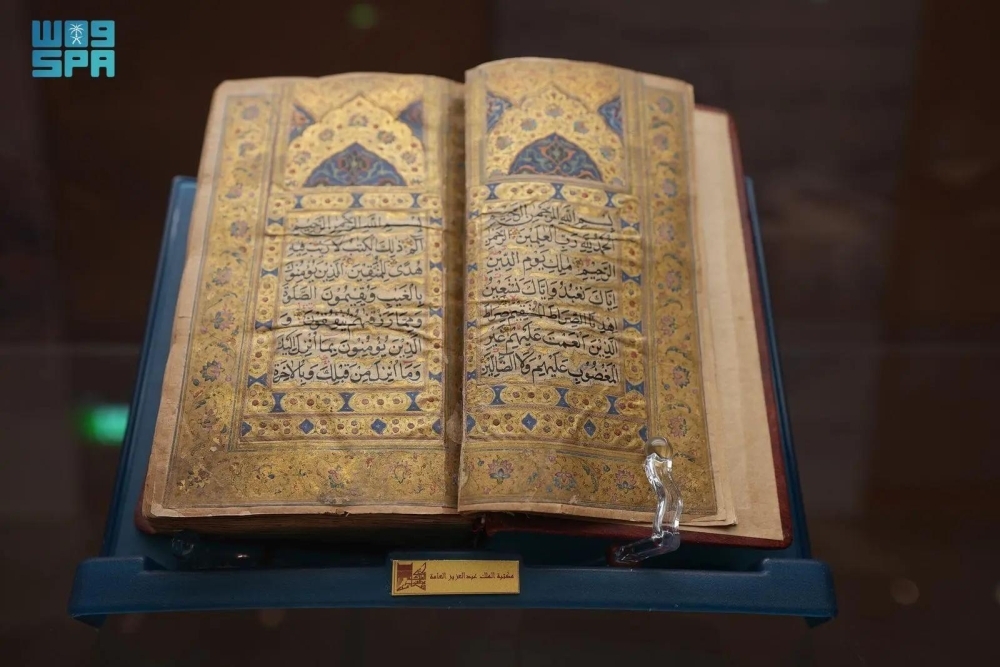 واس
SPA
بسم الله الرحمن الرحيم
الحمد لله رب العلمين الرحمن
الرحيم ملك يوم الدين
اياك نعبد واياك نستعين
اهدنا الصراط المستقيم صراط
الذين انعمت عليهم غير
المغضوب عليهم ولا الضالين
بسم الله الرحمن الرحيم
الم ذلك الكتب لا ريب فيه
هدى للمتقين الذين يؤمنون
بالغيب ويقيمون الصلوة
ومما رزقنهم ينفقون و
الذين يؤمنون بما انزل اليك
وما انزل من قبلك وبالاخرة
مكتبة الملك عبدالعزيز العامة